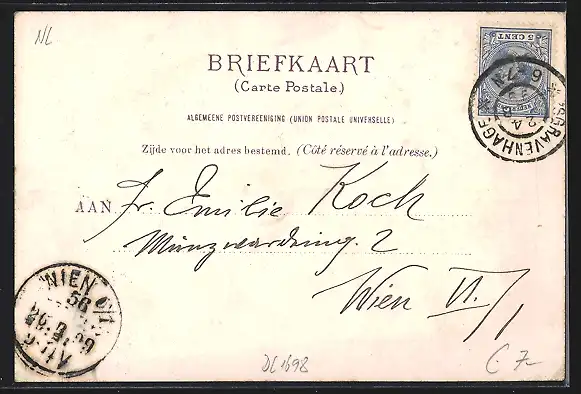 NL
5 CENT
BRIEFKAART
(Carte Postale.)
ALGEMEENE POSTVEREENIGING (UNION POSTALE UNIVERSELLE)
Zijde voor het adres bestemd. (Côté réservé à l'adresse.)
'SGRAVENHAGE
AAN Fr. Emilie Koch
Münzwardeing. 2
Wien VI./1
WIEN 6/1
56
DL1698